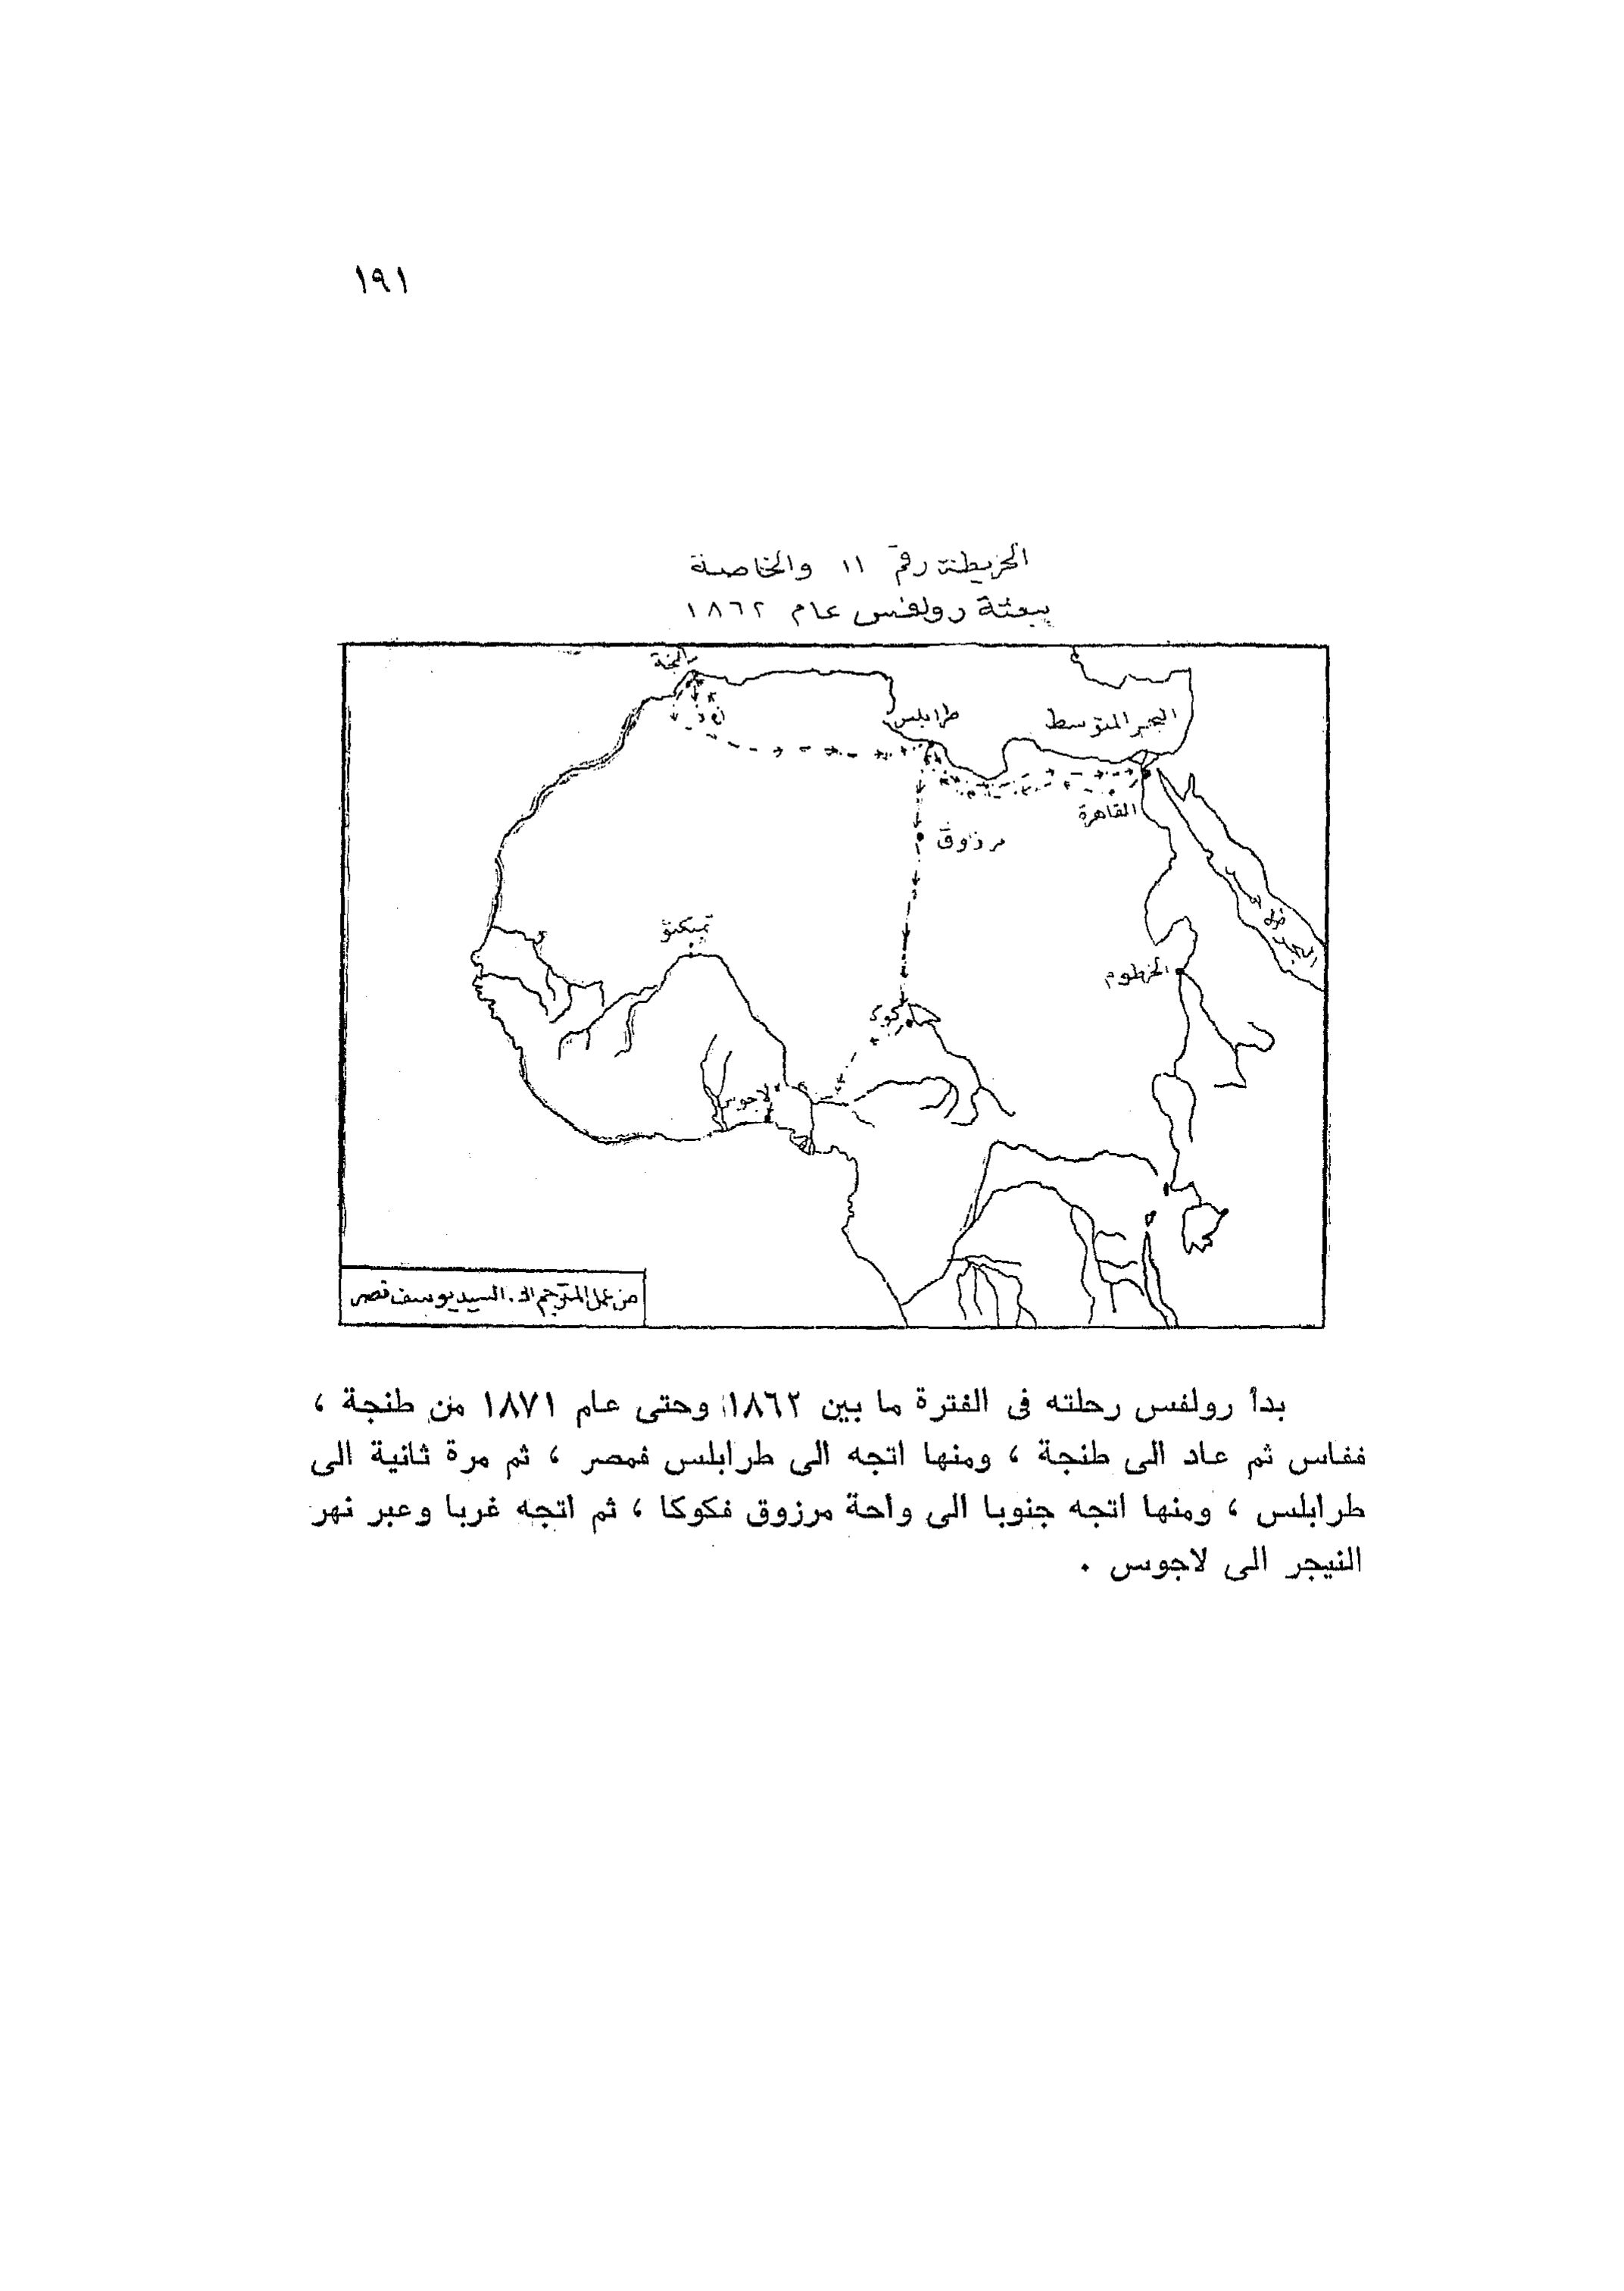 ١٩١
الخريطة رقم ١١ والخاصة
ببعثة رولفس عام ١٨٦٢
طنجة
فاس
طرابلس
البحر المتوسط
القاهرة
مرزوق
البحر الأحمر
تمبكتو
الخرطوم
كوكا
لاجوس
من عمل المترجم السيد يوسف نصر
بدأ رولفس رحلته فى الفترة ما بين ١٨٦٢ وحتى عام ١٨٧١ من طنجة ،
ففاس ثم عاد الى طنجة ، ومنها اتجه الى طرابلس فمصر ، ثم مرة ثانية الى
طرابلس ، ومنها اتجه جنوبا الى واحة مرزوق فكوكا ، ثم اتجه غربا وعبر نهر
النيجر الى لاجوس .